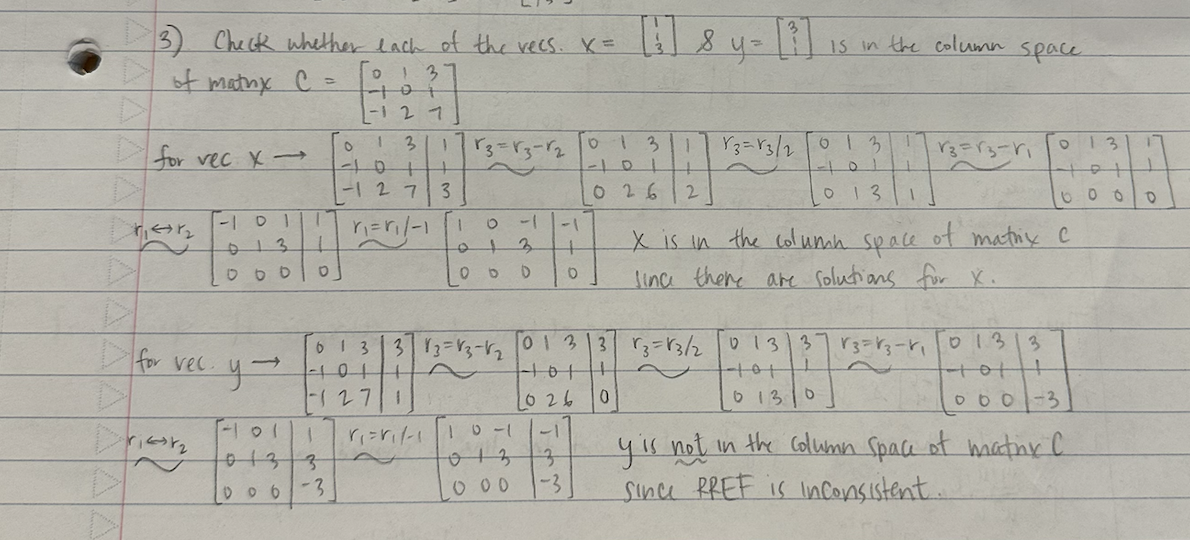 3) Check whether each of the vecs. x = [1 1 3] & y = [3 1 1] is in the column space
of matrix C = [0 1 3; -1 0 1; -1 2 7]
for vec x → [0 1 3 | 1; -1 0 1 | 1; -1 2 7 | 3] r₃=r₃-r₂ ~ [0 1 3 | 1; -1 0 1 | 1; 0 2 6 | 2] r₃=r₃/2 ~ [0 1 3 | 1; -1 0 1 | 1; 0 1 3 | 1] r₃=r₃-r₁ ~ [0 1 3 | 1; -1 0 1 | 1; 0 0 0 | 0]
r₁↔r₂ ~ [-1 0 1 | 1; 0 1 3 | 1; 0 0 0 | 0] r₁=r₁/-1 ~ [1 0 -1 | -1; 0 1 3 | 1; 0 0 0 | 0] x is in the column space of matrix C
since there are solutions for x.
for vec. y → [0 1 3 | 3; -1 0 1 | 1; -1 2 7 | 1] r₃=r₃-r₂ ~ [0 1 3 | 3; -1 0 1 | 1; 0 2 6 | 0] r₃=r₃/2 ~ [0 1 3 | 3; -1 0 1 | 1; 0 1 3 | 0] r₃=r₃-r₁ ~ [0 1 3 | 3; -1 0 1 | 1; 0 0 0 | -3]
r₁↔r₂ ~ [-1 0 1 | 1; 0 1 3 | 3; 0 0 0 | -3] r₁=r₁/-1 ~ [1 0 -1 | -1; 0 1 3 | 3; 0 0 0 | -3] y is not in the column space of matrix C
since RREF is inconsistent.